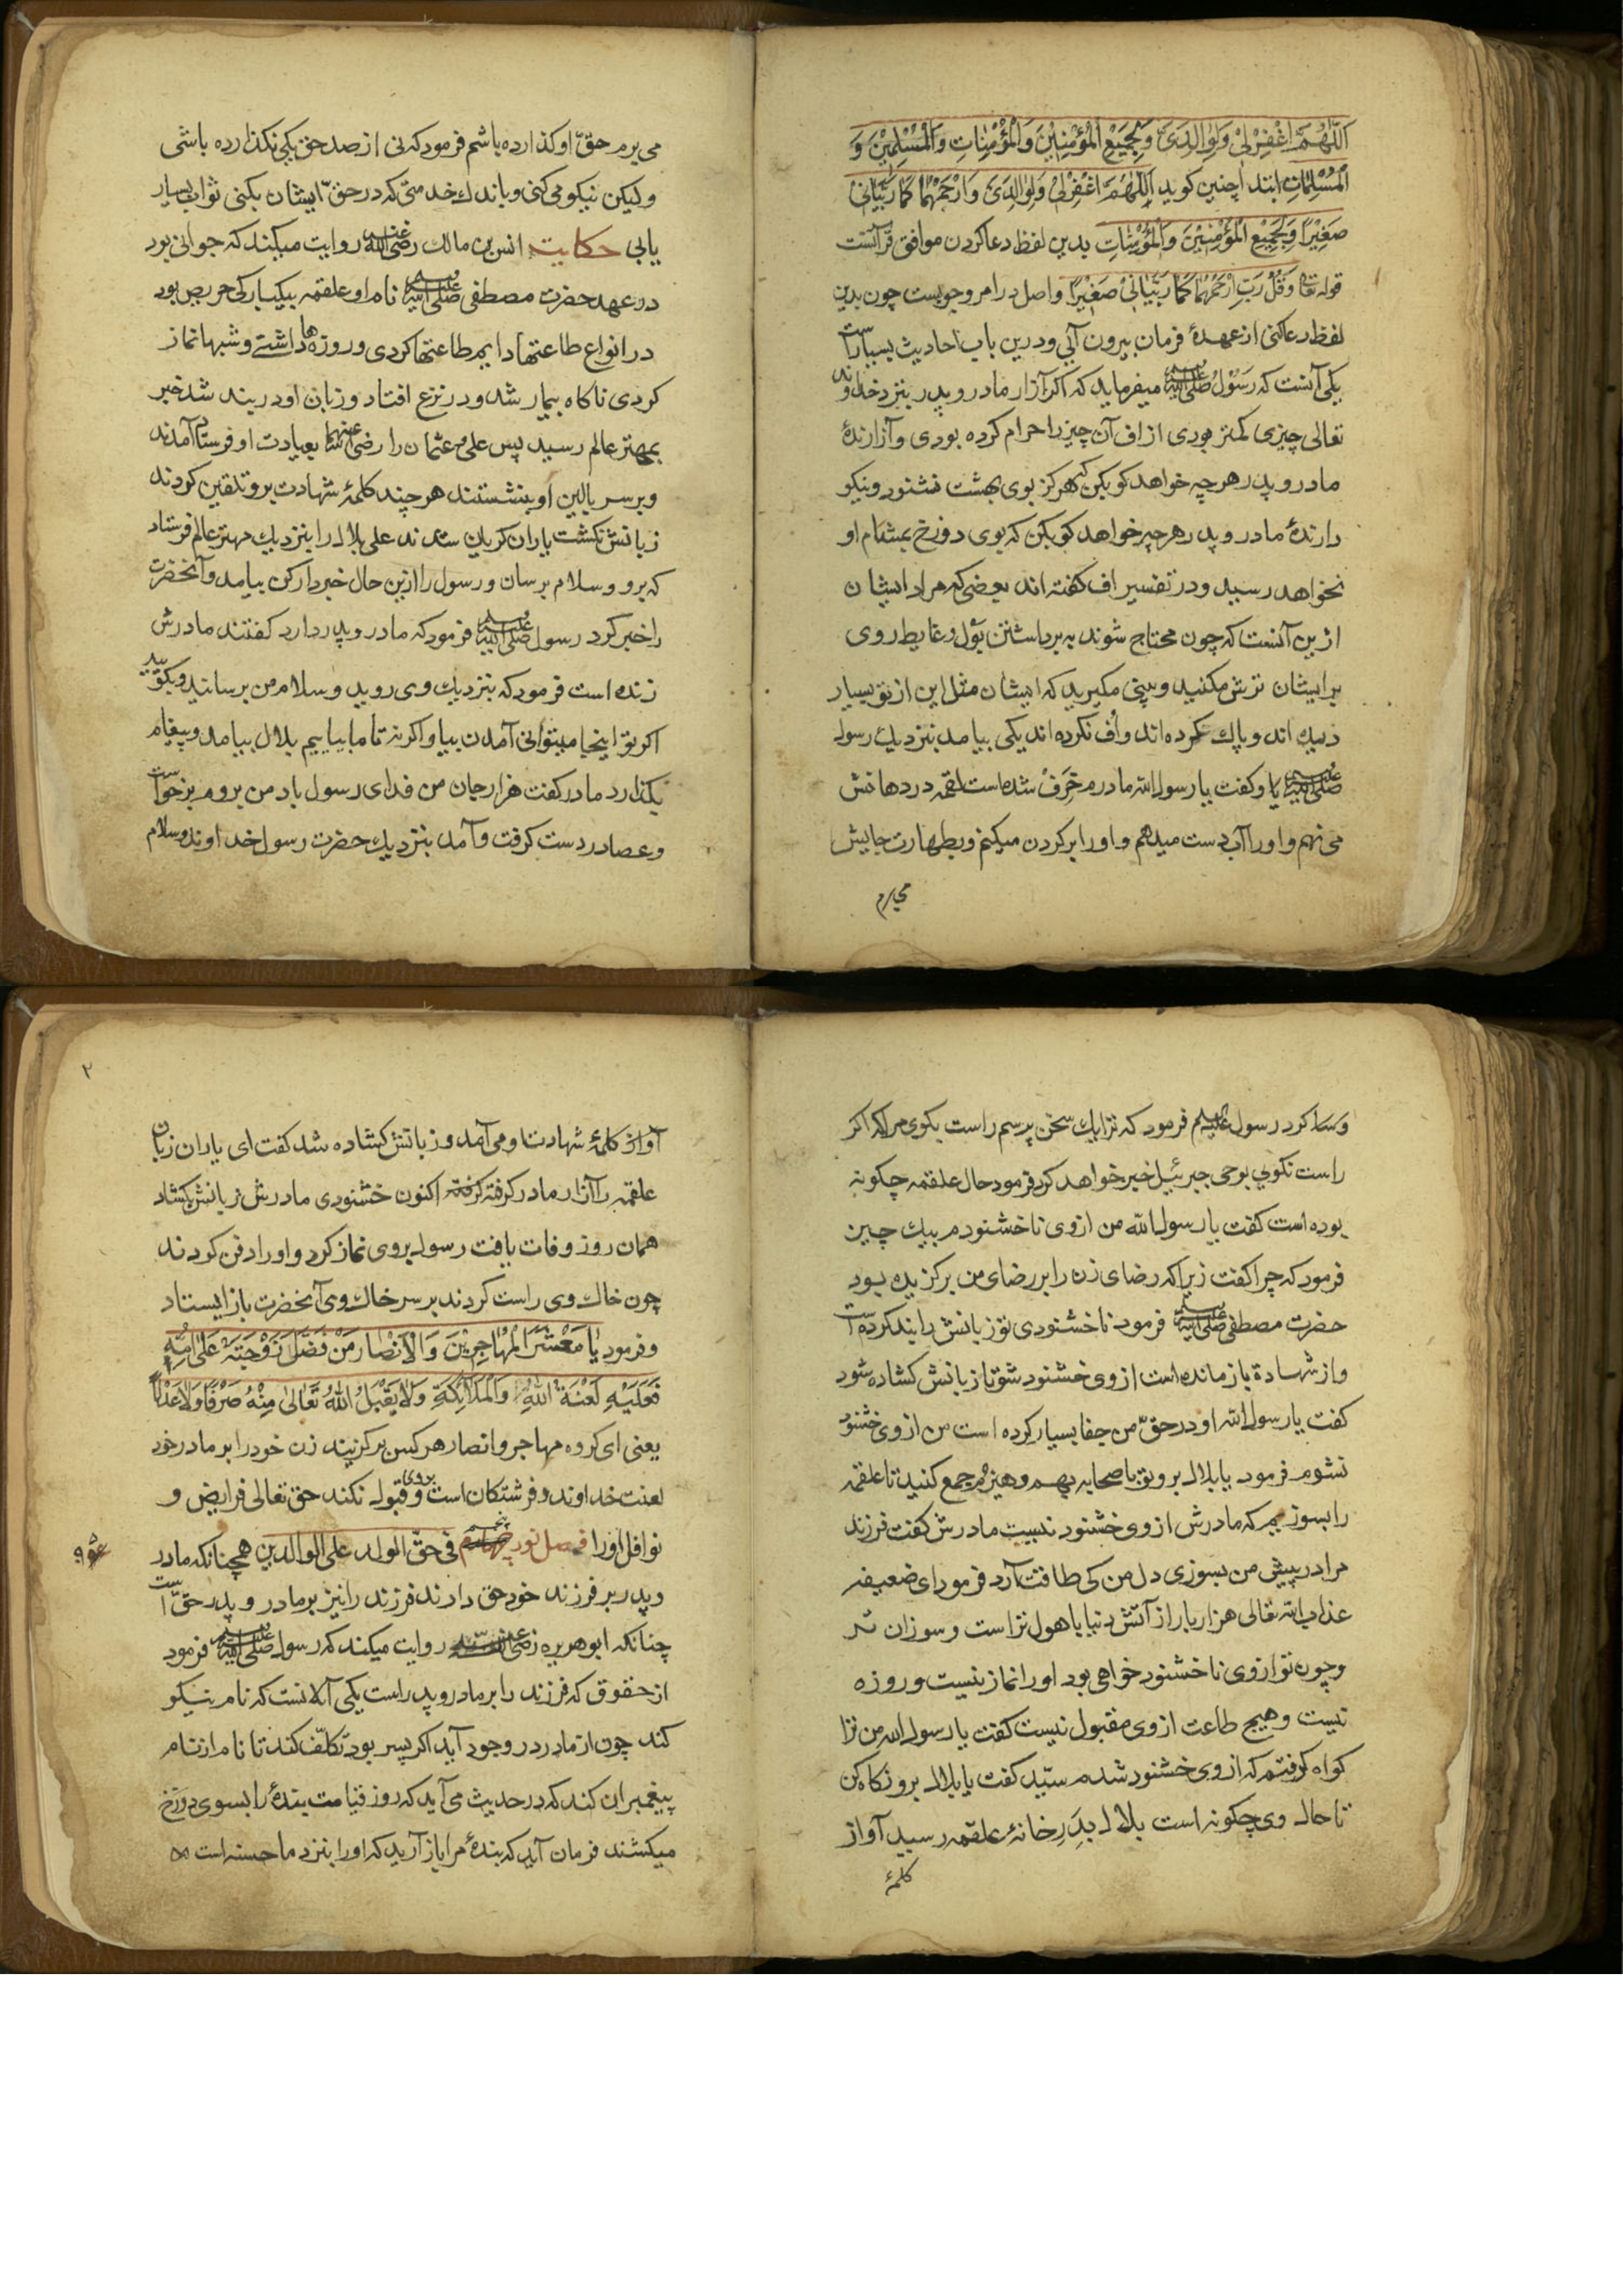 اَللّٰهُمَّ اغْفِرْ لِیْ وَلِوَالِدَیَّ وَلِجَمِیْعِ الْمُؤْمِنِیْنَ وَالْمُؤْمِنَاتِ وَالْمُسْلِمِیْنَ وَ
الْمُسْلِمَاتِ ابتدا چنین کوید اَللّٰهُمَّ اغْفِرْ لِیْ وَلِوَالِدَیَّ وَارْحَمْهُمَا کَمَا رَبَّیَانِیْ
صَغِیْرًا وَلِجَمِیْعِ الْمُؤْمِنِیْنَ وَالْمُؤْمِنَاتِ بدین لفظ دعا کردن موافق قرآنست
قوله تعا وَقُلْ رَبِّ ارْحَمْهُمَا کَمَا رَبَّیَانِیْ صَغِیْرًا واصل در امر وجوبست چون بدین
لفظ دعا کنی از عهدهٔ فرمان بیرون آیی و درین باب احادیث بسیارست
یکی آنست که رَسُوْلُ صلی الله علیه میفرماید که اکر آزار مادر و پدر بنزد خداوند
تعالی چیزی کمتر بودی از اف آن چیز را حرام کرده بودی و آزارندهٔ
مادر و پدر هرچه خواهد کو بکن که هرکز بوی بهشت نشنود و نیکو
دارندهٔ مادر و پدر هرچه خواهد کو بکن که بوی دوزخ بمشام او
نخواهد رسید و در تفسیر اف کفته اند بعضی که مراد ایشان
ازین آنست که چون محتاج شوند به برداشتن بول و غایط روی
برایشان ترش مکنید و بینی مکیرید که ایشان مثل این از تو بسیار
دیده اند و پاک کرده اند و اُف نکرده اند یکی بیامد بنزدیک رسول
صلی الله علیه یا و کفت یا رسول الله مادرم خَرِفْ شده است لقمه در دهانش
می نهم و او را آب دست میدهم و او را بر کردن میکنم و بطهارت جایش
می برم
می برم حقّ او کذارده باشم فرمود که نی از صد حق یکی نکذارده باشی
ولیکن نیکو می کنی و باندک خدمتی که در حقّ ایشان بکنی ثواب بسیار
یابی حکایت انس بن مالک رضی الله عنه روایت میکند که جوانی بود
در عهد حضرت مصطفی صلی الله علیه نام او علقمه بیکبارکی حریص بود
در انواع طاعتها دایم طاعتها کردی و روزه ها داشتے و شبها نماز
کردی ناکاه بیمار شد و در نزع افتاد و زبان او در بند شد خبر
بمهتر عالم رسید پس علی و عثمان را رضی الله عنهما بعیادت او فرستاد آمدند
و برسر بالین او بنشستند هرچند کلمهٔ شهادت برو تلقین کردند
زبانش نکشت یاران کریان شدند علی بلال را بنزدیک مهتر عالم فرستاد
که برو و سلام برسان و رسول را ازین حال خبردار کن بیامد و آنحضرت
را خبر کرد رسول صلی الله علیه فرمود که مادر و پدر دارد کفتند مادرش
زنده است فرمود که بنزدیک وی روید و سلام من برسانید و بکویید
اکر تو اینجا میتوانی آمدن بیا و اکرنه تا ما بیاییم بلال بیامد و پیغام
بکذارد مادر کفت هزار جان من فدای رسول باد من بروم برخواست
و عصا در دست کرفت و آمد بنزدیک حضرت رسول خداوند و سلام
و سا کرد رسول علیه السلم فرمود که ترا یک سخن پرسم راست بکوی مرا که اکر
راست نکویی بوحی جبرئیل خبر خواهد کرد فرمود حال علقمه چکونه
بوده است کفت یا رسول الله من از وی ناخشنودم بیک چیز
فرمود که چرا کفت زیرا که رضای زن را بر رضای من برکزیده بود
حضرت مصطفی صلی الله علیه فرمود ناخشنودی تو زبانش را بند کرده است
و از شهادة باز مانده است از وی خشنود شو تا زبانش کشاده شود
کفت یا رسول الله او در حقّ من جفا بسیار کرده است من از وی خشنود
نشوم فرمود یا بلال برو تو با صحابه بهم و هیزم جمع کنید تا علقمه
را بسوزیم که مادرش از وی خشنود نیست مادرش کفت فرزند
مرا در پیش من بسوزی دل من کی طاقت آرد فرمود ای ضعیفه
عذاب الله تعالی هزار بار از آتش دنیا با هول تر است و سوزان تر
و چون تو از وی ناخشنود خواهی بود او را نماز نیست و روزه
نیست و هیچ طاعت از وی مقبول نیست کفت یا رسول الله من ترا
کواه کرفتم که از وی خشنود شدم سیّد کفت یا بلال برو نکاه کن
تا حال وی چکونه است بلال بدَرِ خانهٔ علقمه رسید آواز
کلمهٔ
۲
آواز کلمهٔ شهادت او می آمد و زبانش کشاده شد کفت ای یاران زبان
علقمه را آزار مادر کرفته کرفته اکنون خشنودی مادرش زبانش کشاد
همان روز وفات یافت رسول بروی نماز کرد و او را دفن کردند
چون خاک وی راست کردند بر سر خاک وی آنحضرت باز ایستاد
و فرمود یَا مَعْشَرَ الْمُهَاجِرِیْنَ وَالْاَنْصَارِ مَنْ فَضَّلَ زَوْجَتَهٗ عَلٰی اُمِّهٖ
فَعَلَیْهِ لَعْنَةُ اللّٰهِ وَالْمَلَائِکَةِ وَلَا یَقْبَلُ اللّٰهُ تَعَالٰی مِنْهُ صَرْفًا وَلَا عَدْلًا
یعنی ای کروه مهاجر و انصار هرکس برکزیند زن خود را بر مادر خود
لعنت خداوند و فرشتکان است بروی و قبول نکند حق تعالی فرایض و
نوافل او را فصل نود پنجم فی حقّ الولد علی الوالدین همچنانکه مادر
و پدر بر فرزند خود حق دارند فرزند را نیز بر مادر و پدر حقّ است
چنانکه ابو هریره رضی الله عنه روایت میکند که رسول صلی الله علیه فرمود
از حقوق که فرزند را بر مادر و پدر راست یکی آنست که نام نیکو
کند چون از مادر در وجود آید اکر پسر بود تکلّف کند تا نام از نام
پیغمبران کند که در حدیث می آید که روز قیامت بندهٔ را بسوی دوزخ
میکشند فرمان آید که بندهٔ مرا باز آرید که او را بنزد ما حسنه است